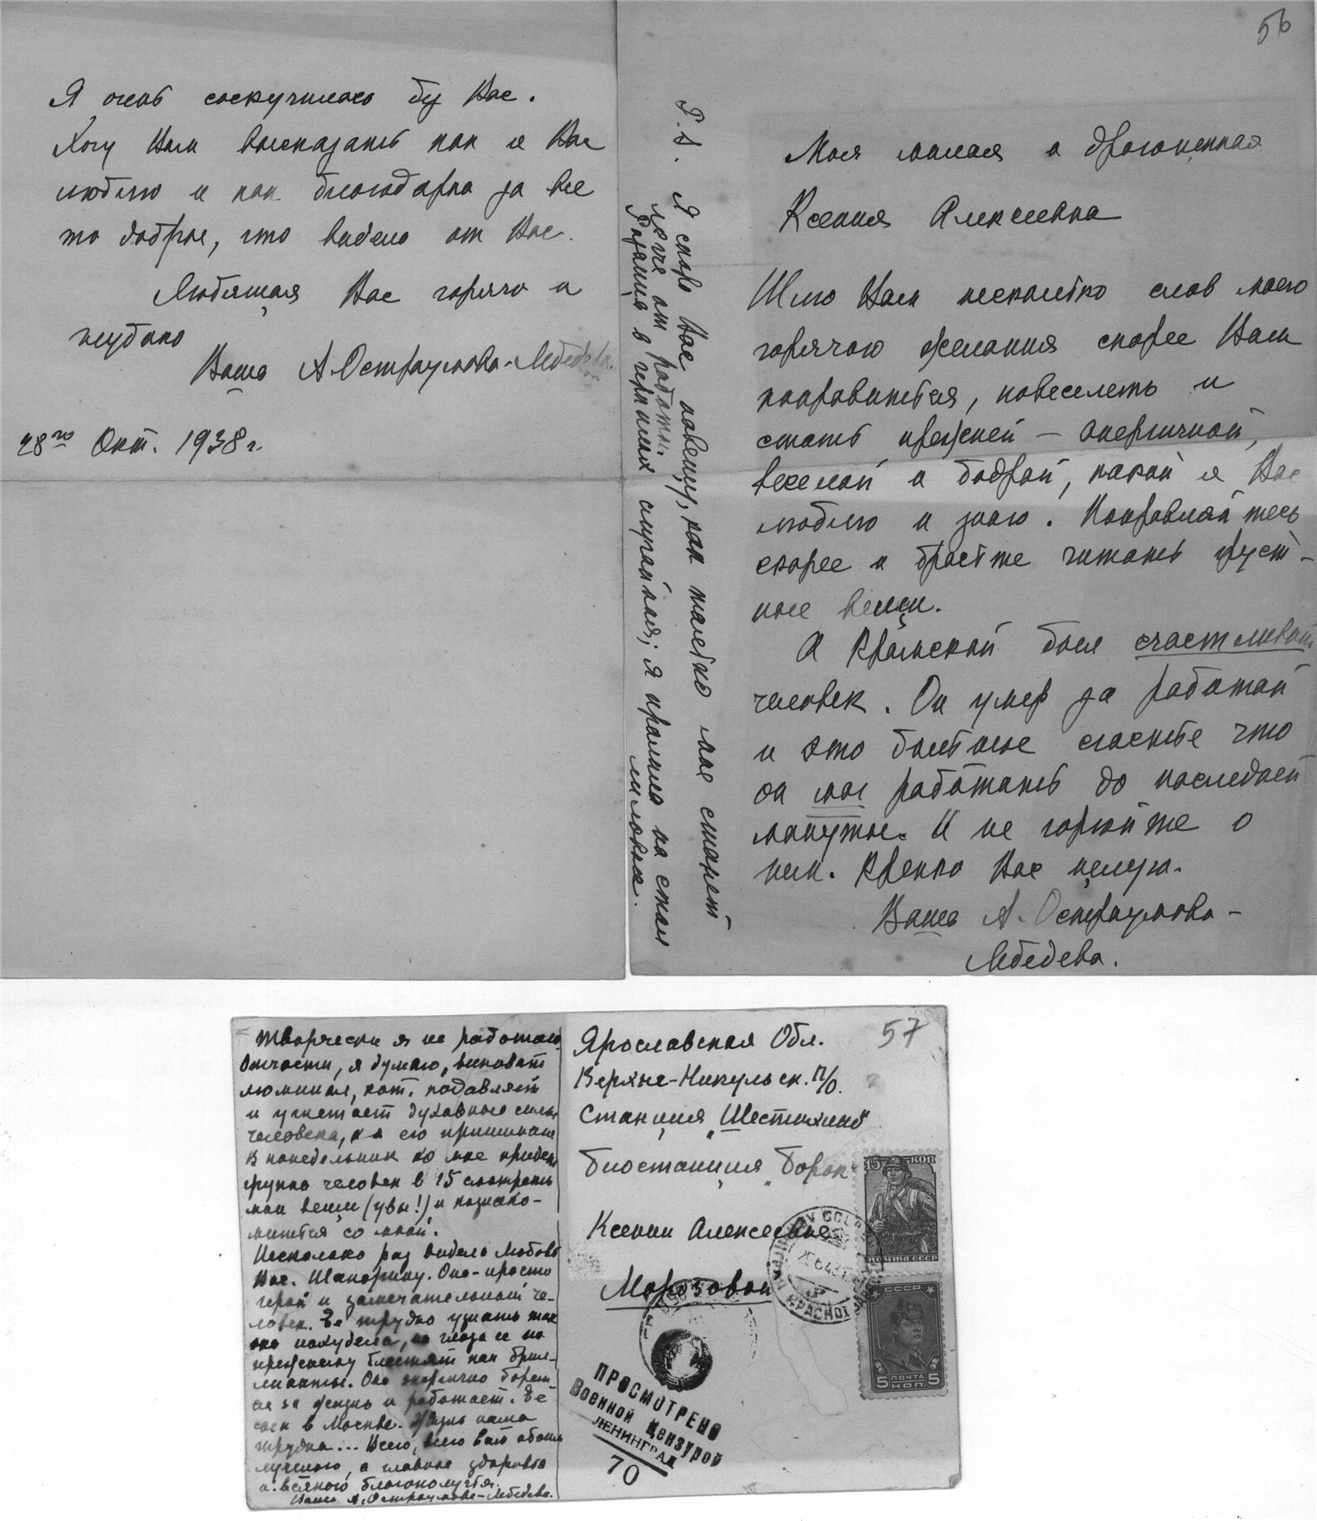 Я очень соскучилась без Вас.
Хочу Вам высказать как я Вас
люблю и как благодарна за все
то доброе, что видела от Вас.
Любящая Вас горячо и
глубоко
Ваша А. Остроумова-Лебедева.
28го Окт. 1938 г.
56
Моя милая и драгоценная
Ксения Алексеевна
Шлю Вам несколько слов моего
горячего желания скорее Вам
поправиться, повеселеть и
стать прежней – энергичной,
веселой и бодрой, какой я Вас
люблю и знаю. Поправляйтесь
скорее и бросьте читать груст-
ные вещи.
А Крамской был счастливый
человек. Он умер за работой
и это большое счастье что
он мог работать до последней
минуты. И не горюйте о
нем. Крепко Вас целую.
Ваша А. Остроумова-
Лебедева.
P.S. Я скоро Вас навещу, как только мне станет
легче от работы.
Разница в чернилах случайная; я пролила на стол
57
Творчески я не работаю.
Отчасти, я думаю, виноват
люминал, кот. подавляет
и угнетает духовные силы
человека, а я его принимаю
В понедельник ко мне придет
группа человек в 15 смотреть
мои вещи (увы!) и познако-
миться со мной.
Несколько раз видела Любовь
Вас. Шапорину. Она – просто
герой и замечательный че-
ловек. Ее трудно узнать так
она похудела, но глаза ее по
прежнему блестят как брил-
лианты. Она энергично борет
ся за жизнь и работает. Её
сын в Москве. Жизнь наша
трудна... Всего, всего Вам обоим
лучшего, а главное здоровья
и всякого благополучия.
Ваша А. Остроумова-Лебедева.
Ярославская Обл.
Верхне-Никульск. п/о.
Станция „Шестихино"
биостанция „Борок"
Ксении Алексеевне
Морозовой
15 КОП
ПОЧТА СССР
СССР
ПОЧТА
5 КОП. 5
ПРОСМОТРЕНО
Военной Цензурой
ЛЕНИНГРАД
70